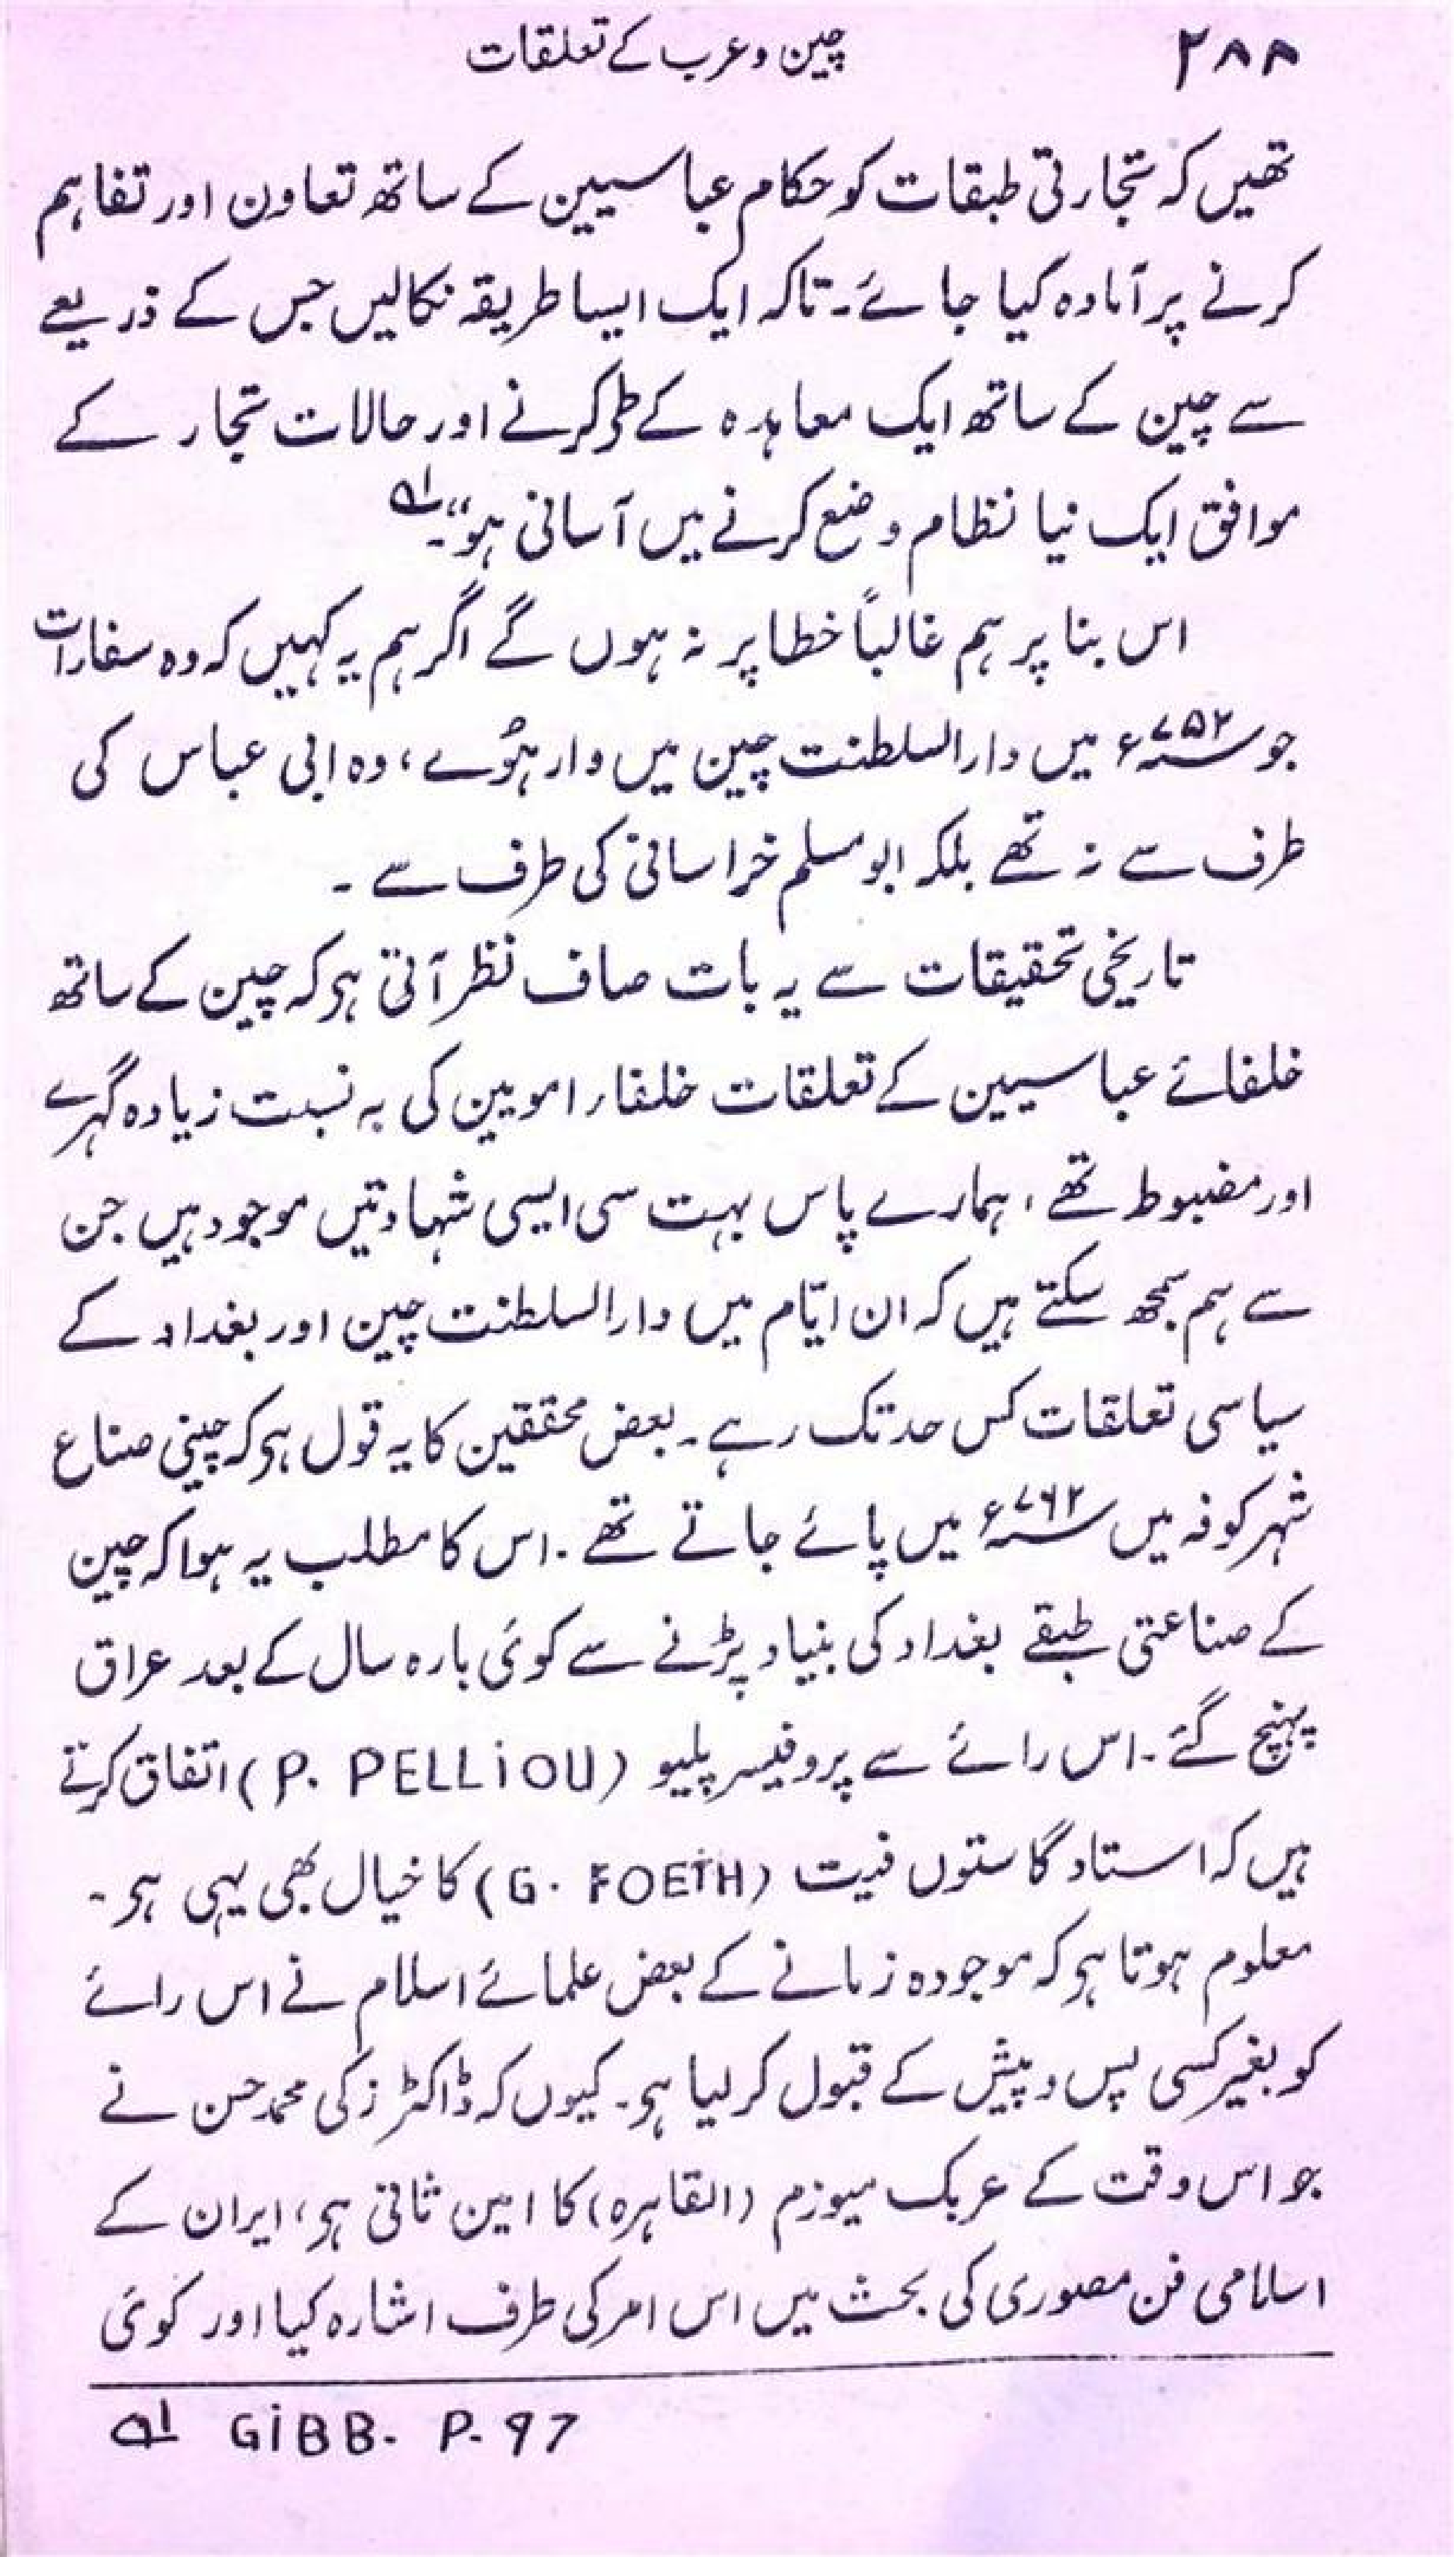 ۲۸۸ چین و عرب کے تعلقات
تھیں کہ تجارتی طبقات کو حکام عباسیین کے ساتھ تعاون اور تفاہم
کرنے پر آمادہ کیا جائے۔ تاکہ ایک ایسا طریقہ نکالیں جس کے ذریعے
سے چین کے ساتھ ایک معاہدہ کے طی کرنے اور حالات تجار کے
موافق ایک نیا نظام وضع کرنے میں آسانی ہو"۔ ؎۱
اس بنا پر ہم غالباً خطا پر نہ ہوں گے اگر ہم یہ کہیں کہ وہ سفارات
جو ۷۵۲ء میں دارالسلطنت چین میں وار ہوئے، وہ ابی عباس کی
طرف سے نہ تھے بلکہ ابو مسلم خراسانی کی طرف سے ۔
تاریخی تحقیقات سے یہ بات صاف نظر آتی ہی کہ چین کے ساتھ
خلفائے عباسیین کے تعلقات خلفار امویین کی بہ نسبت زیادہ گہرے
اور مضبوط تھے، ہمارے پاس بہت سی ایسی شہادتیں موجود ہیں جن
سے ہم سمجھ سکتے ہیں کہ ان ایّام میں دارالسلطنت چین اور بغداد کے
سیاسی تعلقات کس حد تک رہے۔ بعض محققین کا یہ قول ہی کہ چینی صناع
شہر کوفہ میں ۷۶۲ء میں پائے جاتے تھے۔ اس کا مطلب یہ ہوا کہ چین
کے صناعتی طبقے بغداد کی بنیاد پڑنے سے کوئی بارہ سال کے بعد عراق
پہنچ گئے۔ اس رائے سے پروفیسر پلیو (P. PELLiOU) اتفاق کرتے
ہیں کہ استاد گاستوں فیت (G. FOETH) کا خیال بھی یہی ہی۔
معلوم ہوتا ہی کہ موجودہ زمانے کے بعض علمائے اسلام نے اس رائے
کو بغیر کسی پس و پیش کے قبول کر لیا ہی۔ کیوں کہ ڈاکٹر زکی محمد حسن نے
جو اس وقت کے عربک میوزم (القاہرہ) کا امین ثانی ہی، ایران کے
اسلامی فن مصوری کی بحث میں اس امر کی طرف اشارہ کیا اور کوئی
؎۱ GiBB- P-97